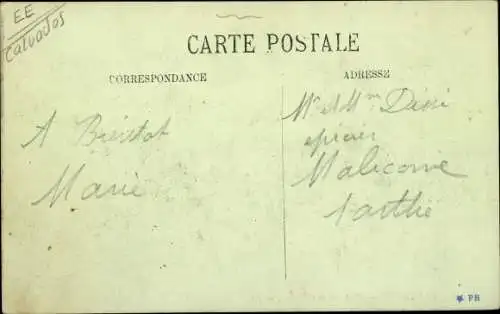 EE
CALVADOS
CARTE POSTALE
CORRESPONDANCE
ADRESSE
A Bientot
Marie
Mr et Mme
epicier
Malicorne
Sarthe
PB